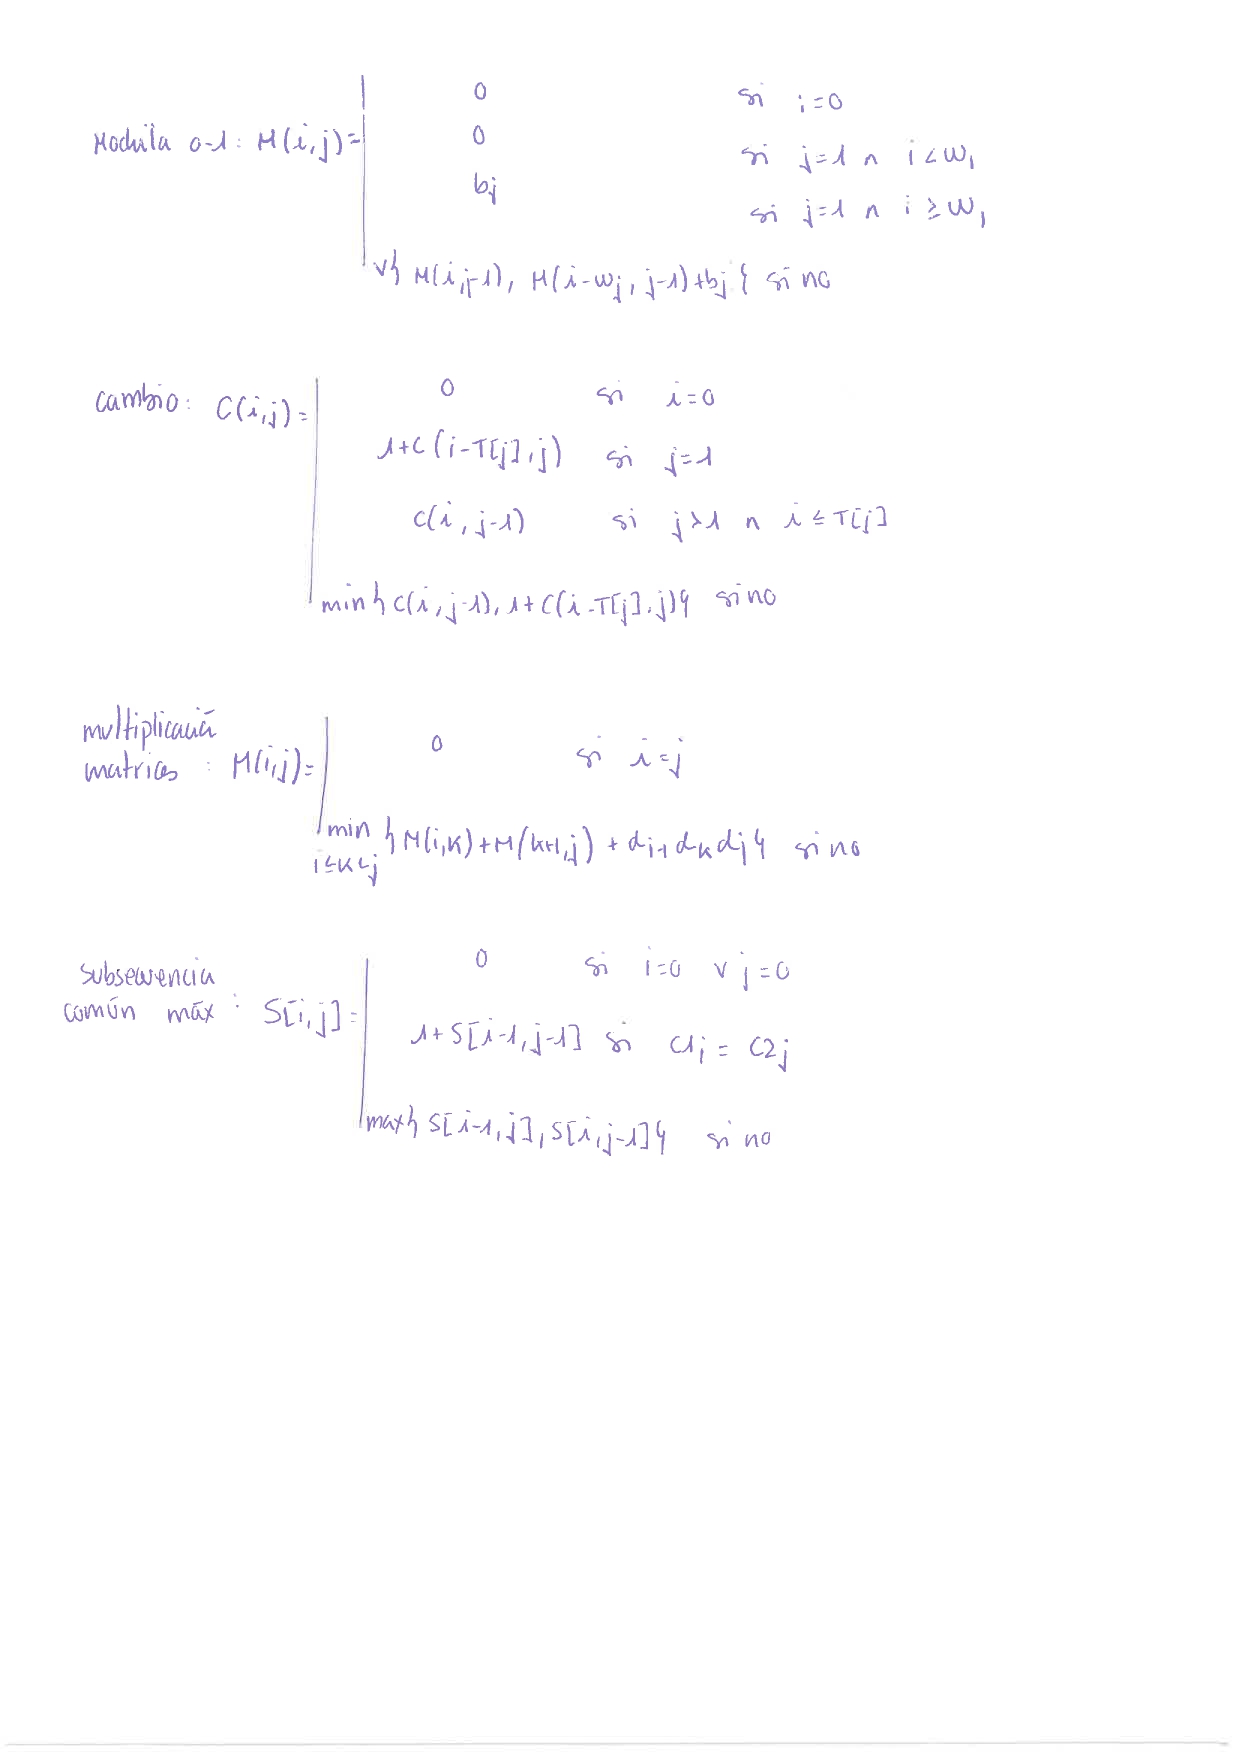 0 si i=0
Mochila 0-1: M(i,j)= 0 si j=1 ∧ i<w₁
bj si j=1 ∧ i≥w₁
∨{ M(i,j-1), M(i-wj, j-1)+bj } si no
cambio: C(i,j)= 0 si i=0
1+C(i-T[j],j) si j=1
C(i,j-1) si j>1 ∧ i≤T[j]
min{C(i,j-1), 1+C(i-T[j],j)} si no
multiplicació
matrices : M(i,j)= 0 si i=j
min {M(i,k)+M(k+1,j) + di-1 dk dj} si no
i≤k<j
subsecuencia 0 si i=0 ∨ j=0
común máx : S[i,j]= 1+S[i-1,j-1] si C1i = C2j
max{ S[i-1,j], S[i,j-1]} si no